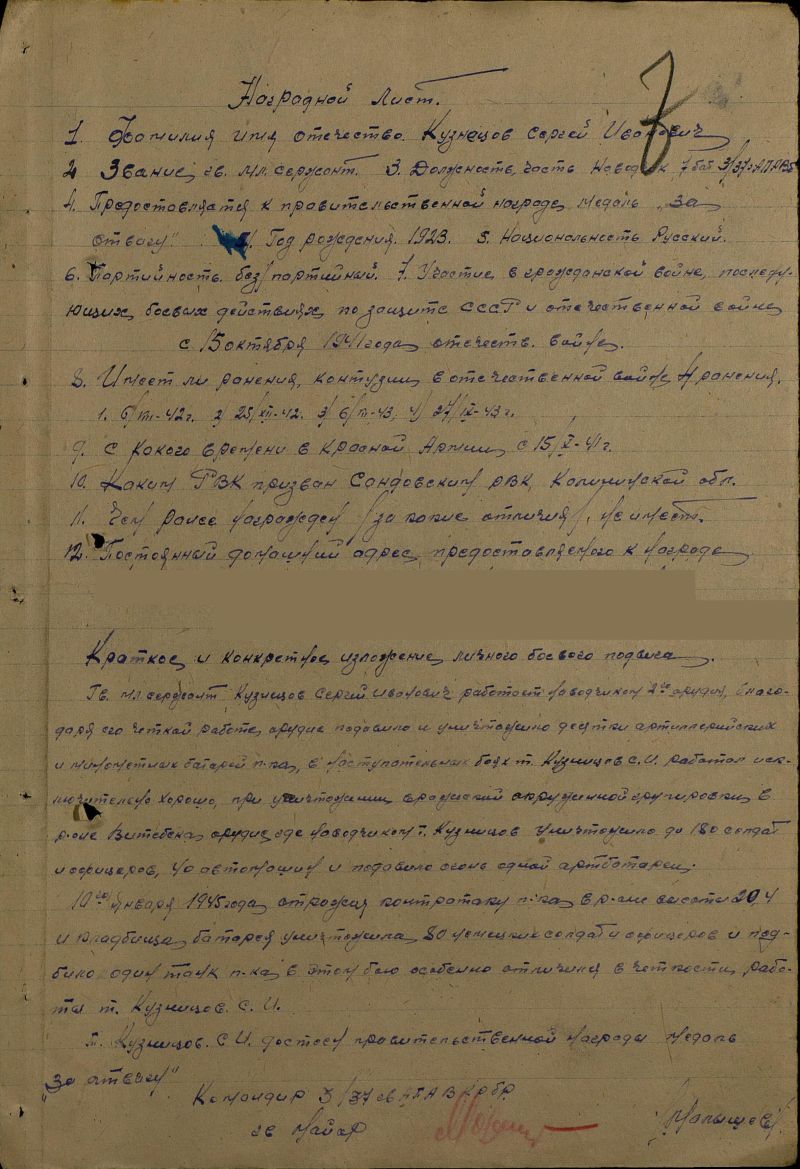 Наградной лист.
1. Фамилия имя отечество. Кузнецов Сергей Иванович
2. Звание, гв. мл. сержант. 3. Должность, часть Наводчик 7 бат 3/37
4. Предоставляется к правительственной награде, медаль „За
отвагу" 4. Год рождения. 1923. 5. Национальность Русский.
6. Партийность. без/партийный. 7. Участие в гражданской войне, последу-
ющих боевых действиях по защите СССР и отечественной войне
с 15 октября 1941 года, отечеств. войне.
8. Имеет ли ранения, контузии в отечественной войне 4 ранения.
1. 6/ -42 г. 2/ 25/XII-42. 3/ 6/ -43, 4/ 27/IX-43 г.
9. С какого времени в Красной Армии с 15/X-41 г.
10. Каким РВК призван Сандовским РВК, Калининской обл.
11. Чем ранее награжден /за какие отличия/, не имеет.
12. Постоянный домашний адрес, предоставляемого к награде
Краткое и конкретное изложение личного боевого подвига.
Гв. мл. сержант, Кузницов Сергей Иванович работает наводчиком 2го орудия, благо-
даря его четкой работе, орудие подавило и уничтожило десятки артиллерийских
и минометных батарей п-ка, в наступательных боях т. Кузницов С. И. работал иск-
лючителено хорошо, при уничтожении вражеской окруженной групировки в
р-оне Витебска орудие где наводчиком т. Кузницов уничтожило до 180 солдат
и офицеров, 40 автомашин и подавило огонь одной артбатареи.
10го Января 1945 года, отражая контратаку п-ка в р-оне высоты 20,4
и кладбища батарея уничтожила 80 немецких солдат и офицеров и под-
било один танк п-ка, в этом бою особенно отличился в четкости рабо-
ты т. Кузницов. С. И.
Т. Кузницов. С. И. достоен правительственной награды медаль
„За отвагу"
Командир 3/37 гв АПАБ РБР
гв майор Малышев